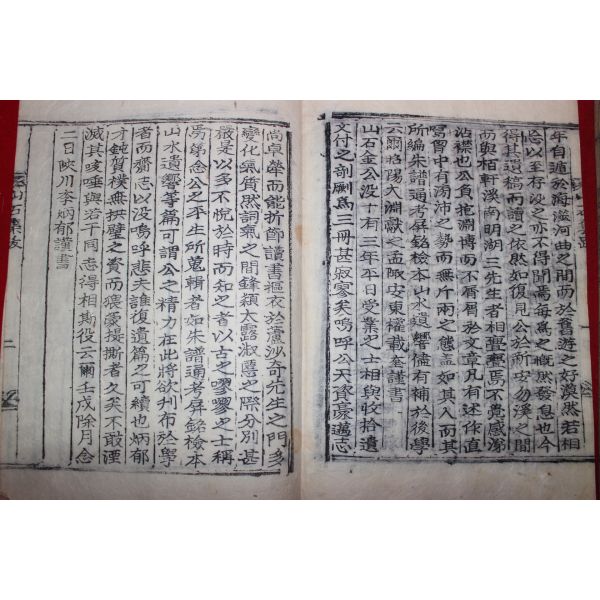 年自遁於海濱河曲之間而於舊遊之好漠然若相
忘以至存没之亦不得聞焉每爲之慨然發息也今
得其遺稿而讀之依然如復見公於新安勿溪之間
而與栢軒溪南明湖三先生者相亹亹焉不覺感淚
沾襟也公負抱淵博而不屑屑於文章凡有述作直
寫胷中有滂沛之勢而無斤兩之態盖如其人而其
所編朱譜通考屏銘檢本山水遺響儘有補於後學
云爾昭陽大淵獻之孟陬安東權載奎謹書
山石金公没十有三年平日受業之士相與收拾遺
文付之剞劂爲三冊甚寂寥矣嗚呼公天資豪邁志
尚卓犖而能折節讀書摳衣於蘆沙奇先生之門多
變化氣質然詞氣之間鋒穎太露淑慝之際分別甚
嚴是以多不悅於時而知之者以古之嘐嘐之士稱
焉第念公之平生所蒐輯者如朱譜通考屏銘檢本
山水遺響等篇可謂公之精力在此將欲刊布於學
者而齎志以没嗚呼悲夫誰復遺篇之可續也炳郁
才鈍質樸無拱璧之資而蒙接撕者久矣不敢湮
滅其咳唾與若干同志得相斯役云爾壬戌除月念
二日陜川李炳郁謹書
山石集跋
二